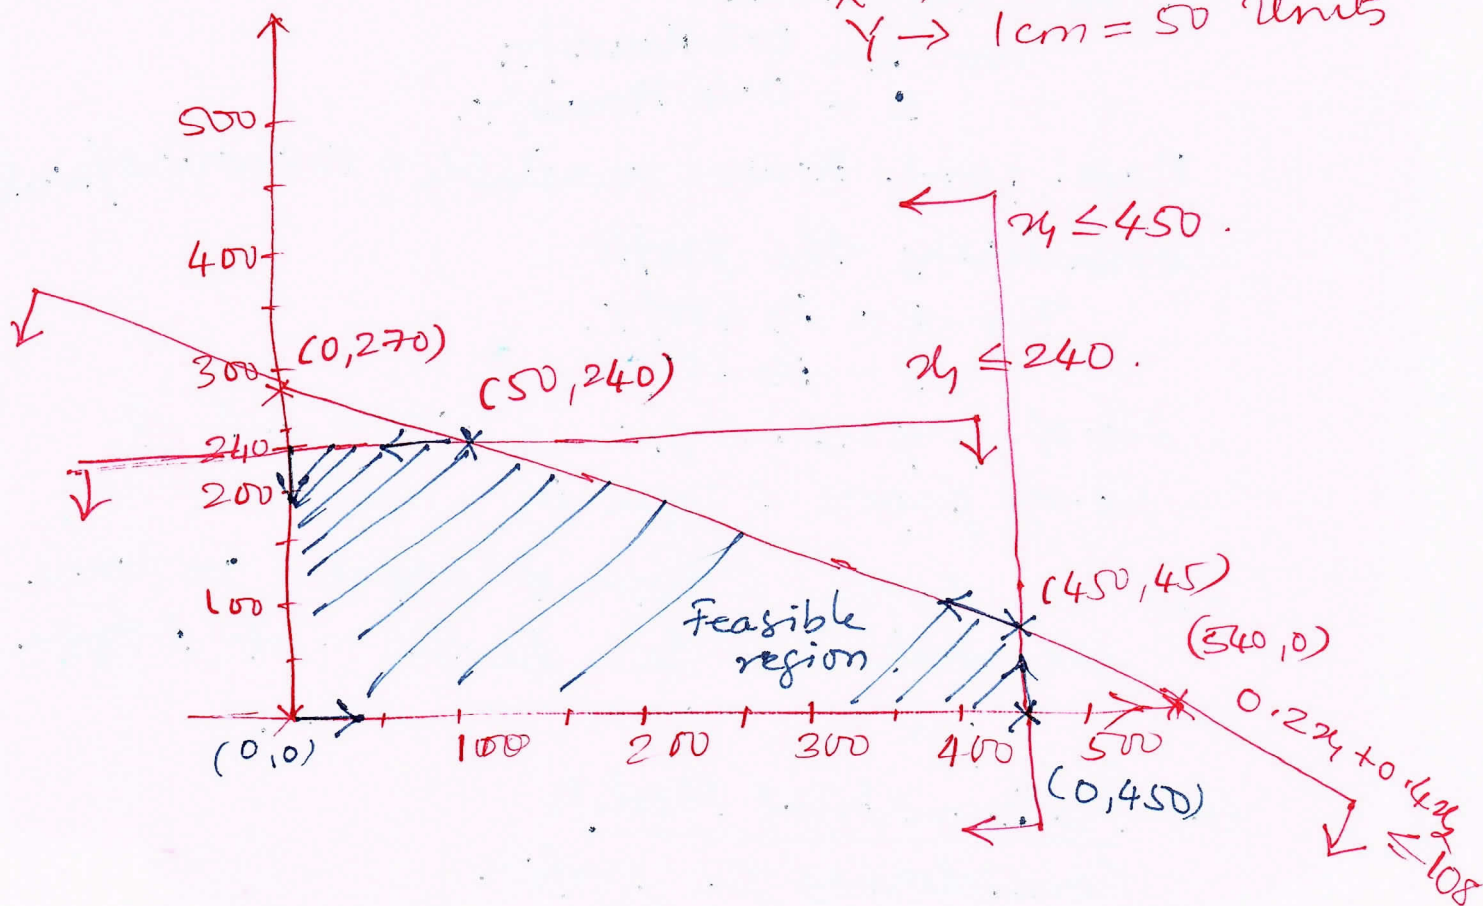 Y → 1cm = 50 Units
500
400
x₁ ≤ 450.
300
(0,270)
(50,240)
x₁ ≤ 240.
240
200
100
Feasible
region
(450,45)
(540,0)
0.2x₁ + 0.4x₂
≤ 108
(0,0)
100 200 300 400 500
(0,450)